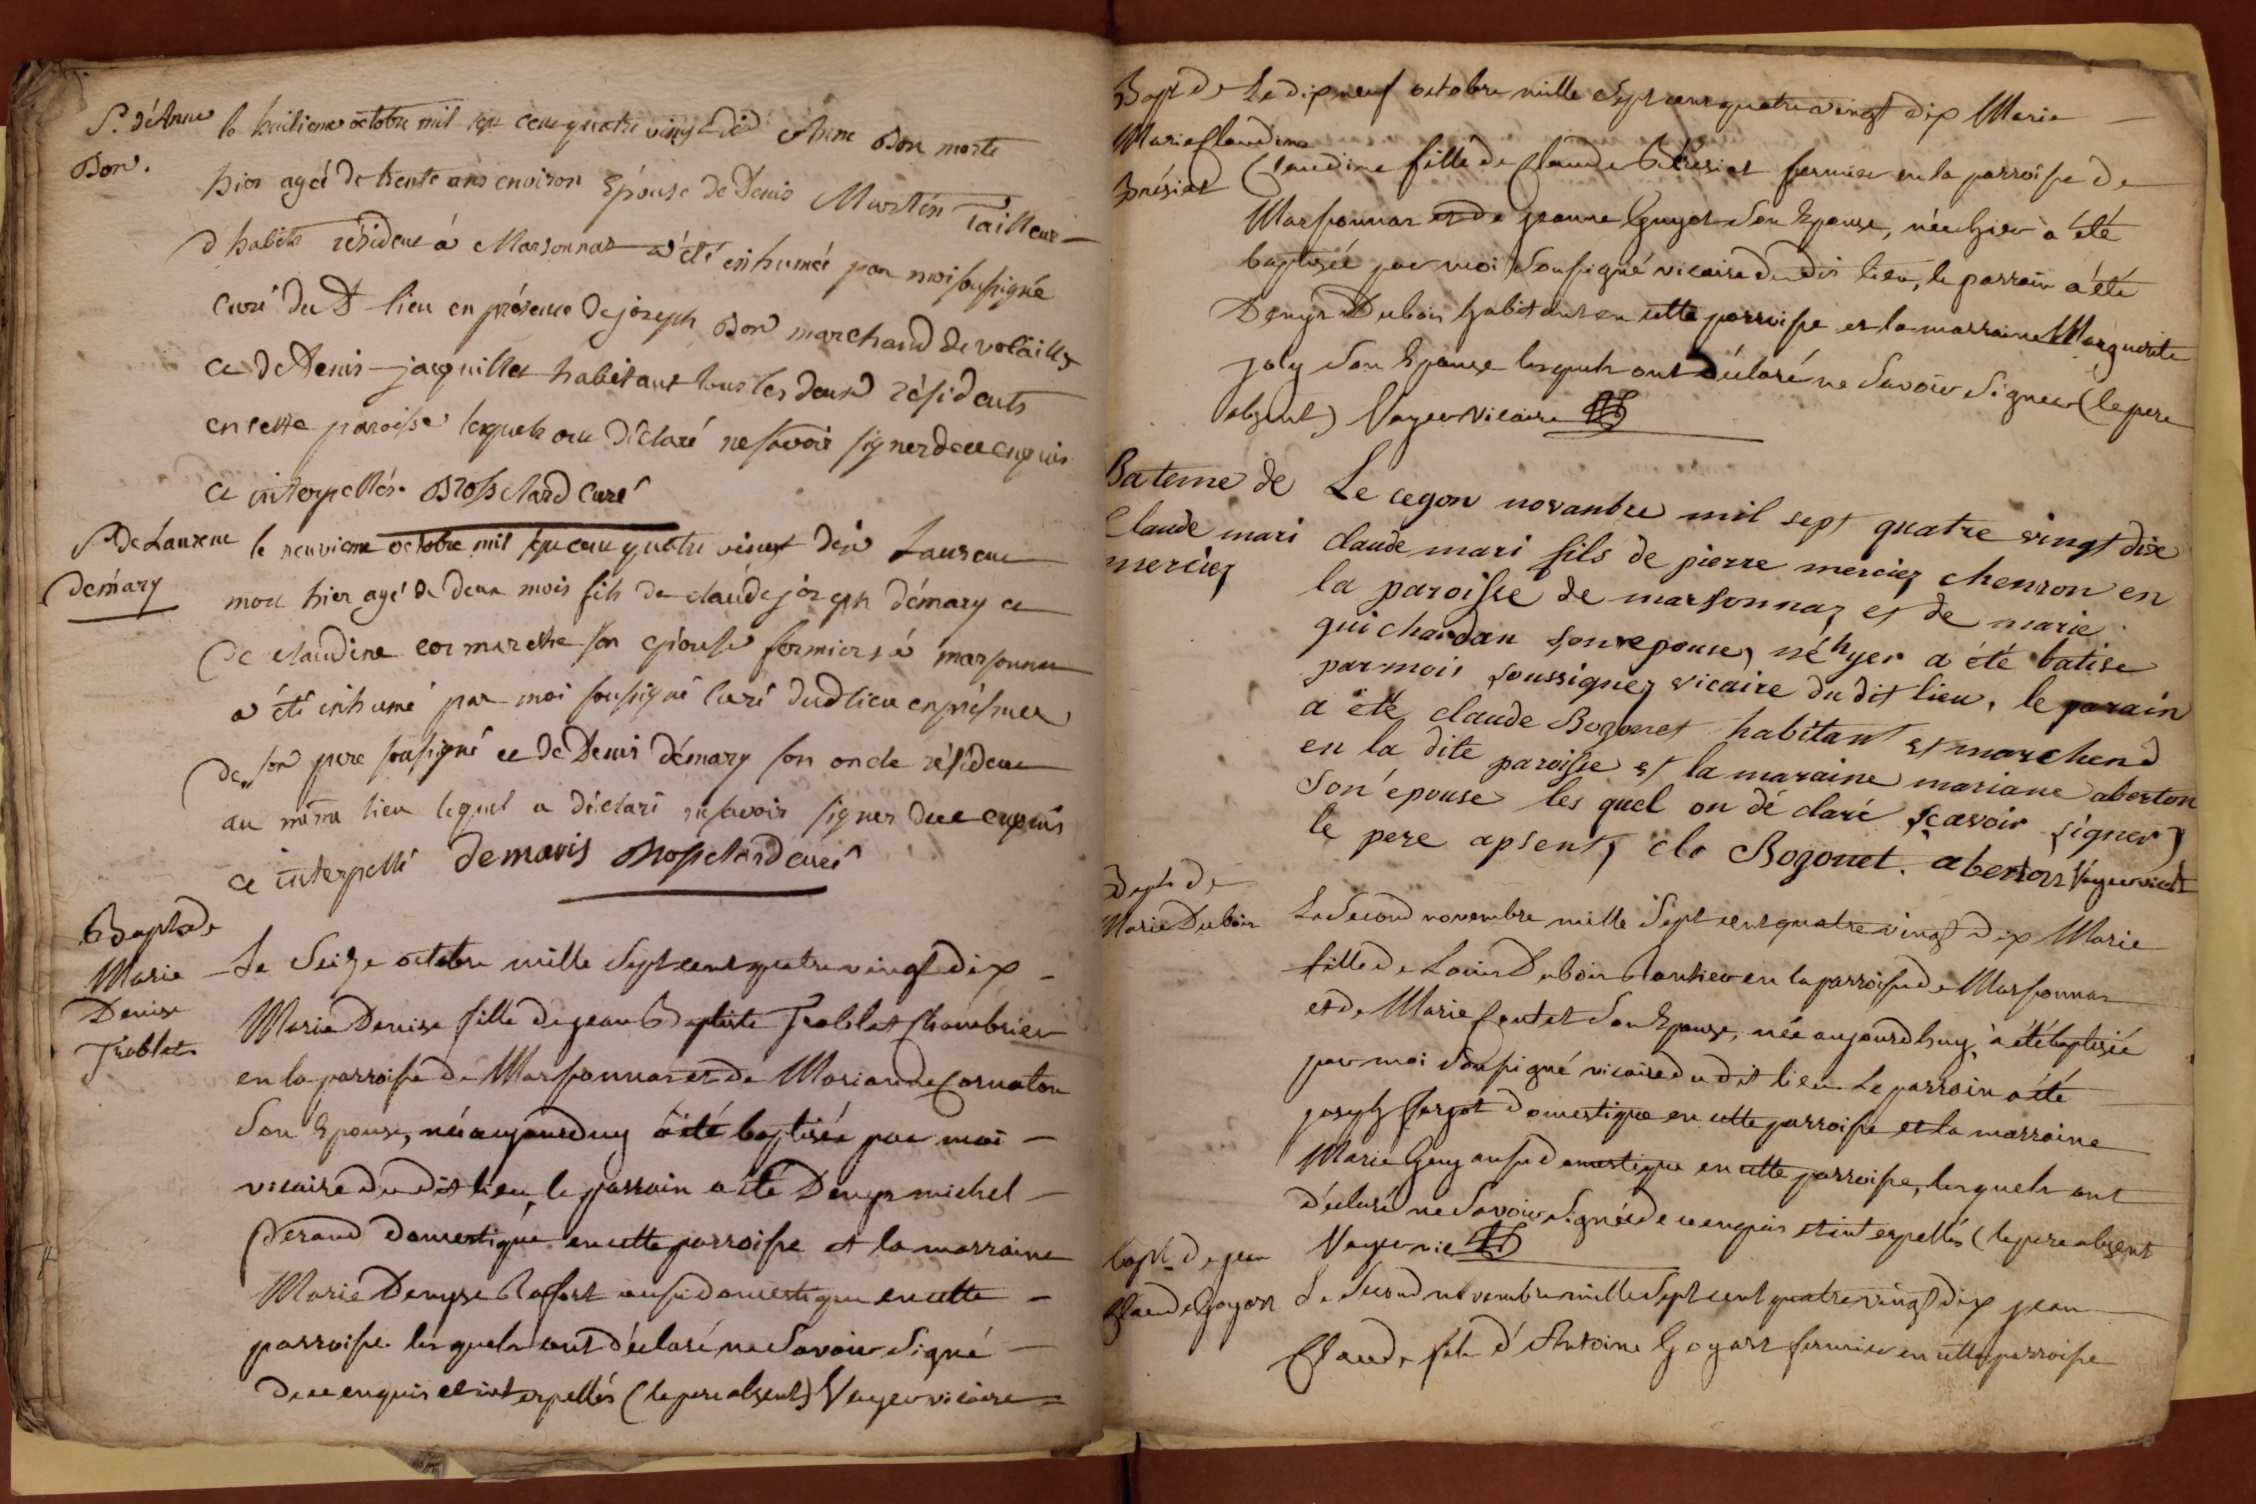 S. d'Anne
Bon.
le huitieme octobre mil sept cent quatre vingt dix Anne Bon morte
hier ageé de trente ans environ Epouse de Denis Martin Tailleur
d habits résident à Marsonnas a été inhumée par moi soussigné
Curé du d lieu en présence de joseph Bon marchand de volailles
et de Denis jacquillet habitant tous les deux résidents
en cette paroisse lesquels ont déclaré ne savoir signer de ce enquis
et interpellés. Brosselard Curé
S. de Laurent
démary
le neuvieme octobre mil sept cent quatre vingt dix Laurent
mort hier agé de deux mois fils de claude joseph démary et
de claudine cormareche son epouse fermiers à marsonnas
a été inhumé par moi soussigné Curé dud lieu en présence
de son pere soussigné et de Denis démary son oncle résident
au même lieu lequel a déclaré ne savoir signer de ce enquis
et interpellé demaris Brosselard curé
Bapt de
Marie
Denise
Treblet
Le Seize octobre mille Sept cent quatre vingt dix
Marie Denise fille de jean Baptiste Treblet Chambrier
en la parroisse de Marsonnas et de Marianne Cornaton
Son Epouse, née aujourduy a été baptisée par moi
vicaire du dit lieu, le parrain a été Denys michel
Deraud domestique en cette parroisse et la marraine
Marie Denyse Rafort aussi domestique en cette
parroisse lesquels ont déclaré ne Savoir Signé
de ce enquis et interpellés (le pere absent) Vayer vicaire
Bapt de
Marie Claudine
Brésiat
Le dix neuf octobre mille Sept cent quatre vingt dix Marie
Claudine fille de Claude Brésiat fermier en la parroisse de
Marsonnas et de jeanne Guyot Son Epouse, née hier a été
baptisée par moi Soussigné vicaire du dit lieu, le parrain a été
Denys Dubois habitant en cette parroisse et la marraine Marguerite
joly Son Epouse lesquels ont déclaré ne Savoir Signer (le pere
absent) Vayer vicaire
Bateme de
Claude mari
mercier
Le cegon novanbre mil sept quatre vingt dix
claude mari fils de pierre mercier chenron en
la paroisse de marsonnaz et de marie
guichardan son epouse, né hyer a été batise
par mois soussignez vicaire du dit lieu, le parain
a été claude Bozonet habitant et marchend
en la dite paroisse et la maraine mariane aberton
son épouse les quel on dé claré sçavoir signer
le pere apsent, clo Bozonet. aberton Vayer vicaire
Bapt de
Marie Dubois
Le Second novembre mille Sept cent quatre vingt dix Marie
fille de Louis Dubois Rantier en la parroisse de Marsonnas
et de Marie Contet Son Epouse, née aujourdhuy, a été baptisée
par moi Soussigné vicaire du dit lieu Le parrain a été
joseph forgot domestique en cette parroisse et la marraine
Marie Guy aussi domestique en cette parroisse, lesquels ont
déclaré ne Savoir Signé de ce enquis et interpellés (le pere absent
Vayer vic
bapt. de jean
Claude Goyon
Le Second novembre mille Sept cent quatre vingt dix jean
Claude fils d'Antoine Goyon fermier en cette parroisse